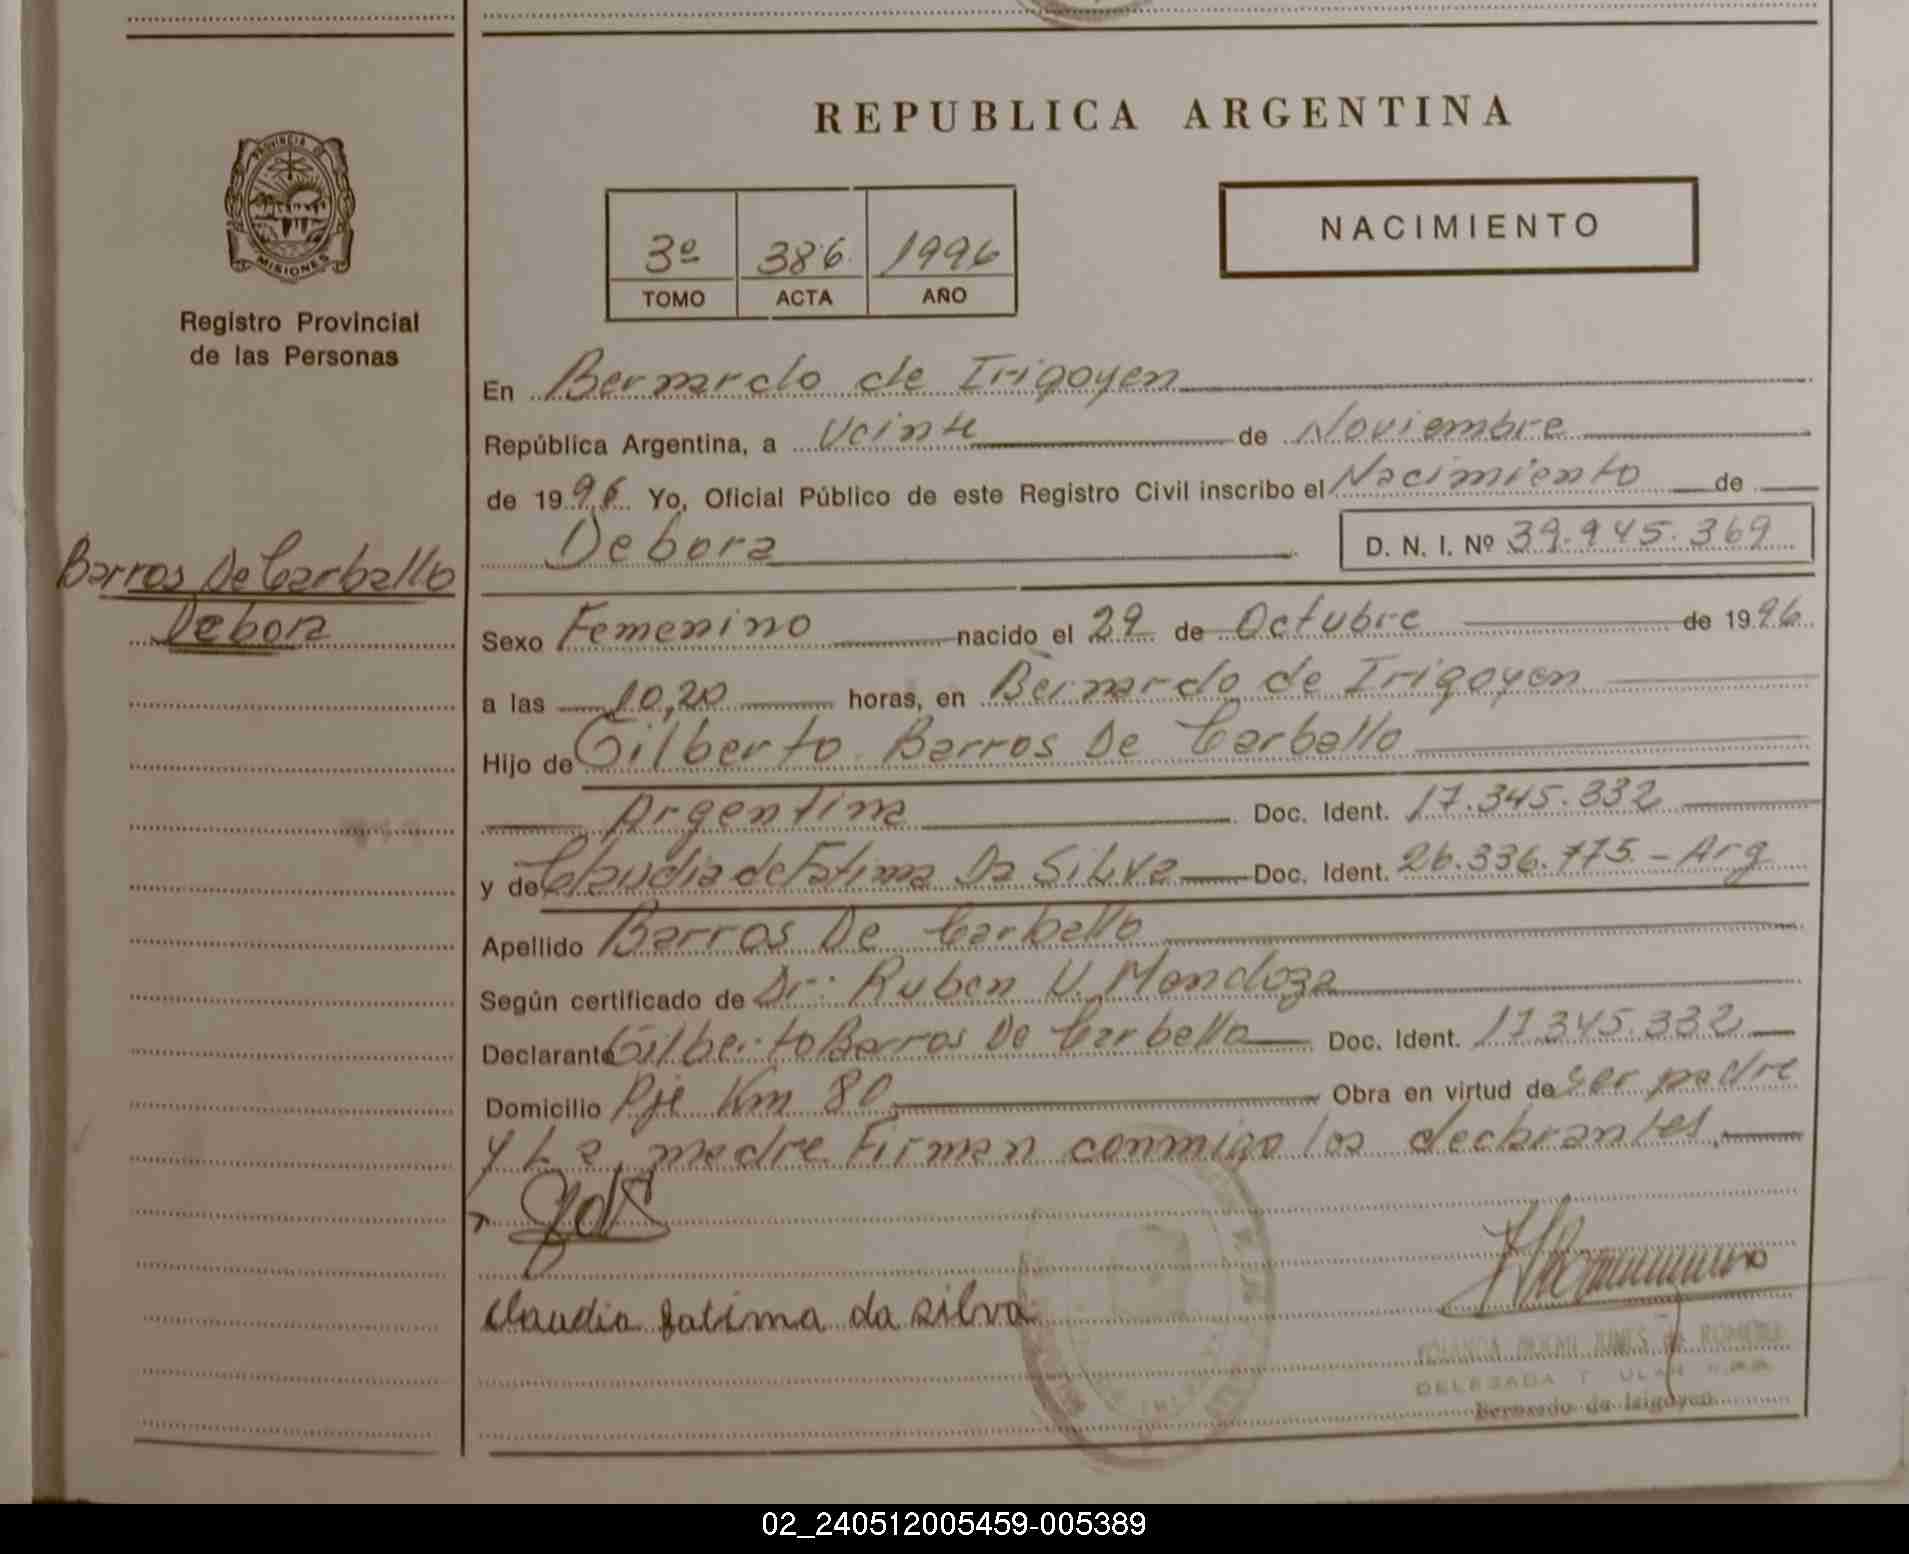 REPUBLICA ARGENTINA
PROVINCIA DE
MISIONES
Registro Provincial
de las Personas
NACIMIENTO
3º 386 1996
TOMO ACTA AÑO
En Bernardo de Irigoyen
República Argentina, a Veinte de Noviembre
de 1996 Yo, Oficial Público de este Registro Civil inscribo el Nacimiento de
Debora D. N. I. Nº 39.945.369
Barros De Carballo
Debora
Sexo Femenino nacido el 29 de Octubre de 1996
a las 10,20 horas, en Bernardo de Irigoyen
Hijo de Gilberto Barros De Carballo
Argentina Doc. Ident. 17.345.332
y de Claudia de Fatima Da Silva Doc. Ident. 26.336.775 - Arg
Apellido Barros De Carballo
Según certificado de Dr. Ruben V. Mendoza
Declarante Gilberto Barros De Carballo Doc. Ident. 17.345.332
Domicilio Pje Km 80 Obra en virtud de ser padre
y La madre Firman conmigo los declarantes
Claudia fatima da silva
DELEGADA
Bernardo de Irigoyen
02_240512005459-005389